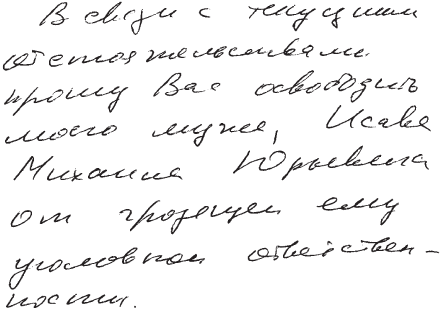 В связи с текущими
обстоятельствами
прошу Вас освободить
моего мужа, Исаева
Михаила Юрьевича
от грозящей ему
уголовной ответствен-
ности.